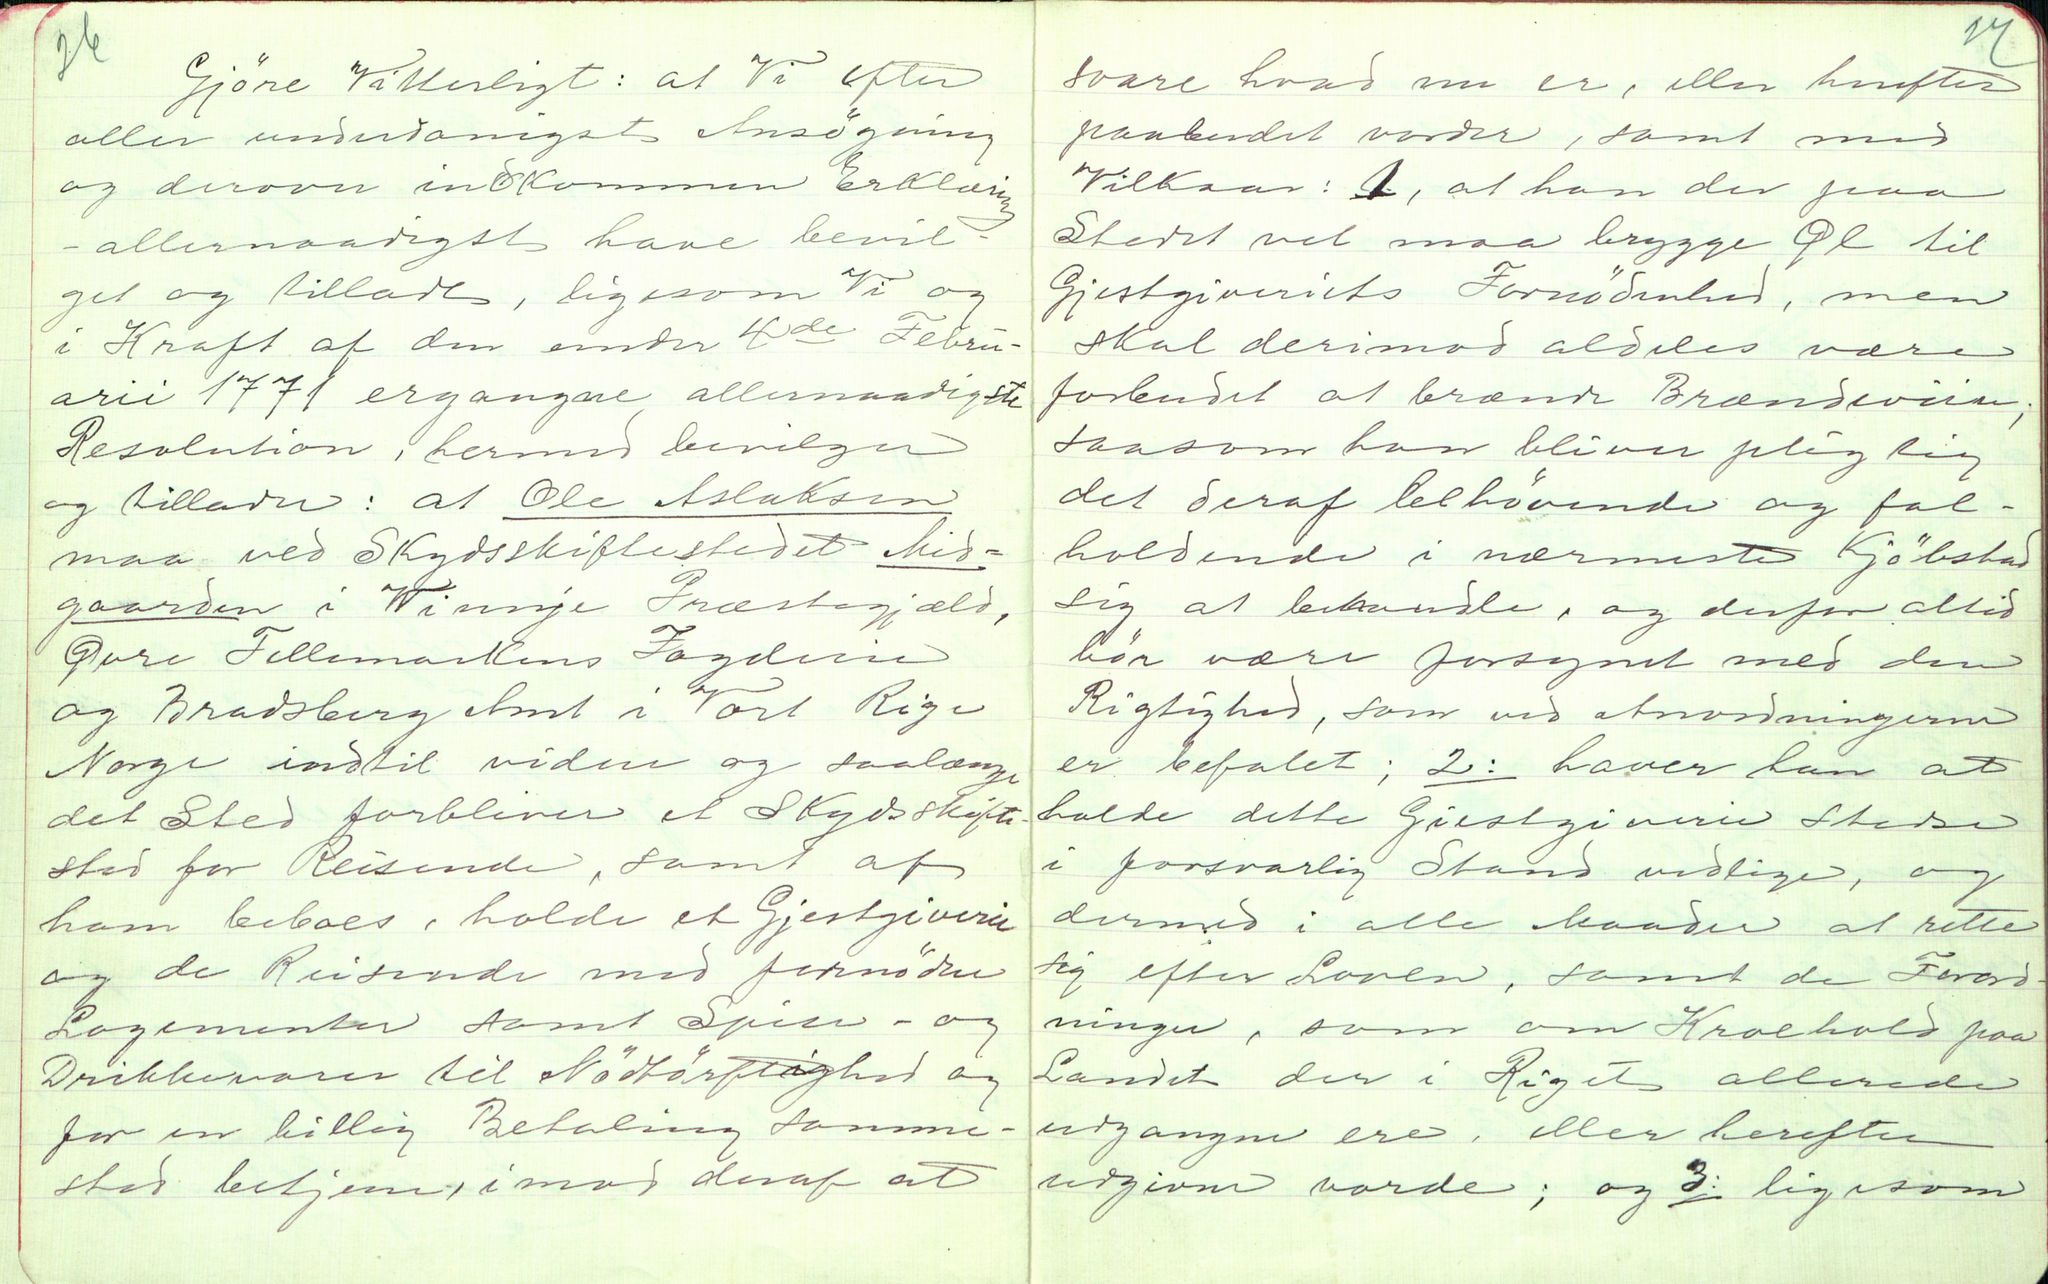 26
Gjöre Vitterligt: at Vi efter
aller underdanigst Ansögning
og derover indkommen Erklæring
-allernaadigst have bevil-
get og tilladt, ligesom Vi og
i Kraft af den under 4de Febru-
arii 1771 ergangne allernaadigste
Resolution, hermed bevilger
og tillader: at Ole Aslaksen
maa ved Skydsskiftestedet Mid-
gaarden i Winnje Præstegjæld,
Øvre Tellemarkens Fogderie
og Bradsberg Amt i Vort Rige
Norge indtil videre og saalænge
det Sted forbliver et Skydsskifte-
sted for Reisende, samt af
ham beboes, holde et Gjestgiverie
og de Reisende med fornödne
Logementer samt Spise- og
Drikkevarer til Nödtörftighed og
for en billig Betaling samme-
sted betjene, imod deraf at
27
svare hvad nu er, eller herefter
paabudet vorder, samt med
Vilkaar: 1, at han der paa
Stedet vel maa brygge Øl til
Gjestgiveriets Fornödenhed, men
skal derimod aldeles være
forbudet at brænde Brændeviin;
saasom han bliver pligtig
det deraf behövende og fal-
holdende i nærmeste Kjöbstad
sig at behandle, og derfor altid
bör være forsynet med den
Rigtighed, som ved Anordningerne
er befalet; 2: haver han at
holde dette Giestgiverie stedse
i forsvarlig Stand vedlige, og
dermed i alle Maader at rette
sig efter Loven, samt de Forord-
ninger, som om Kroehold paa
Landet der i Riget allerede
udgangne ere, eller herefter
udgivne vorde; og 3: ligesom